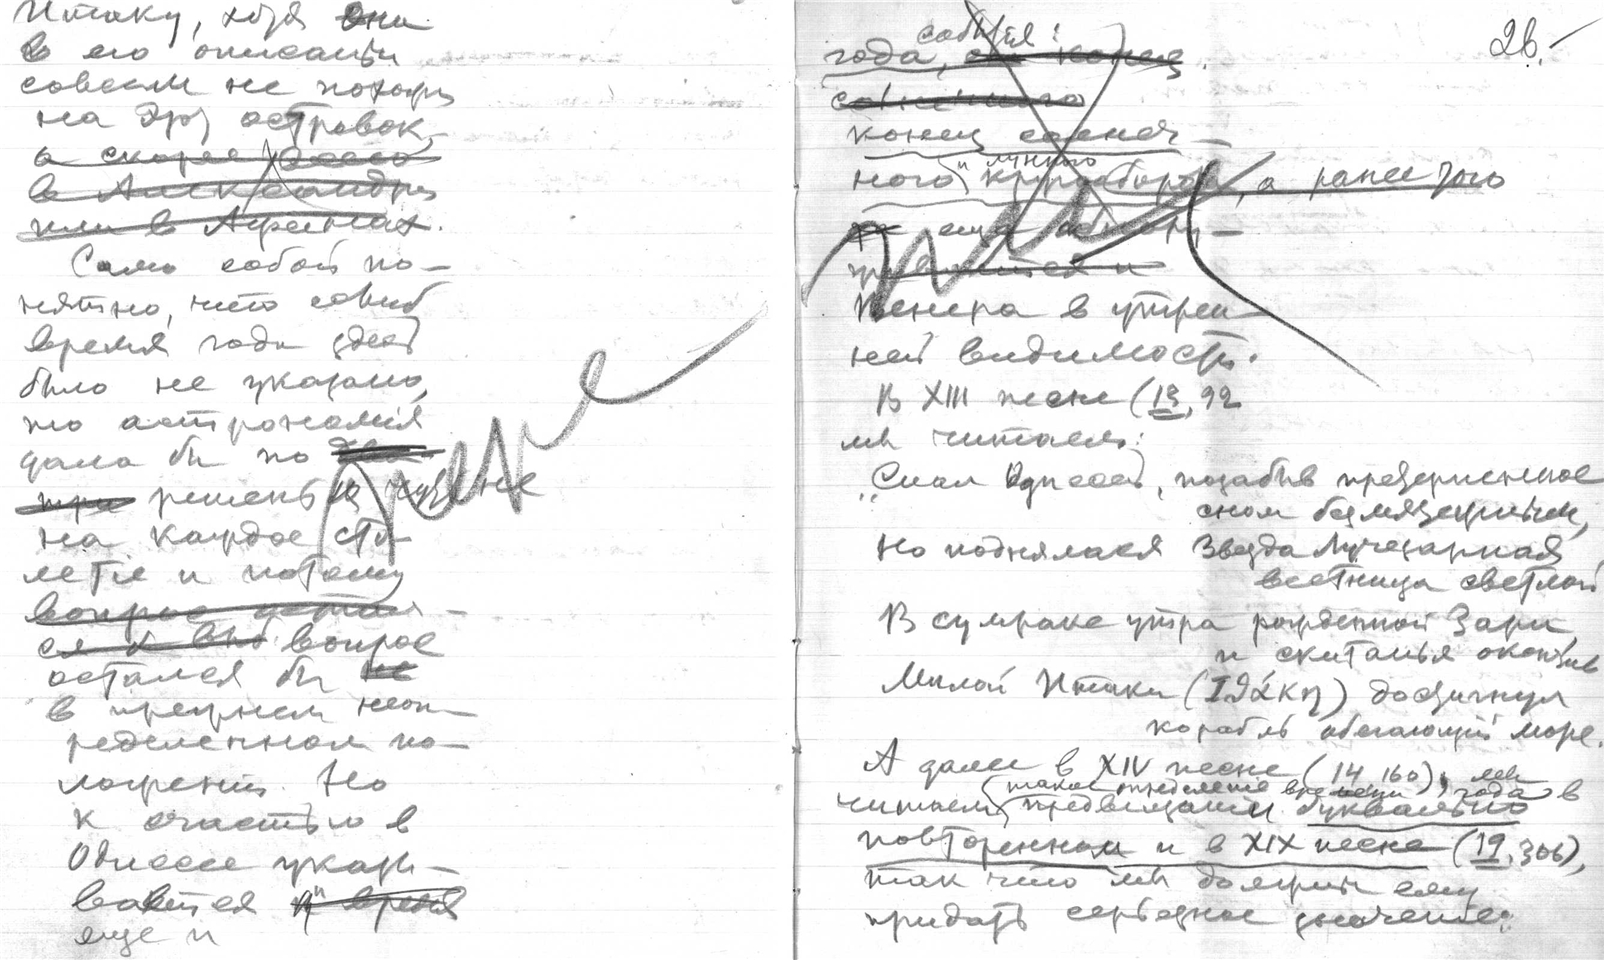 Итаку, хотя она
в его описании
совсем не походит
на эту островок,
а скорее всего
в Александрии
или в Афинах.
Само собой по-
нятно, что если б
время года здесь
было не указано,
то астрономия
дала бы по два-
три решения
на каждое сто-
летие и потому
вопрос остал-
ся вопрос
остался бы не
в прежнем неоп-
ределенном по-
ложении. Но
к счастью в
Одиссее указы-
вается и время
еще и
28.
события:
года, конец
солнечного
конец солнеч-
и лунного
ного круговорота, а ранее того
еще
Венера в утрен-
ней видимости.
В XIII песне (13, 92
мы читаем:
„Спал Одиссей, позабыв
сном безмятежным,
Но поднялася Звезда Лучезарная
вестница светлой
В сумраке утра рожденной Зари,
и скитанья окончив
Милой Итаки (Ἰθάκη) достигнул
корабль обегающий море.
А далее в XIV песне (14 160), мы
такое определение времени года в
читаем предвещании буквально
повторенном и в XIX песне (19, 306),
так что мы должны ему
придать серьезное значение: